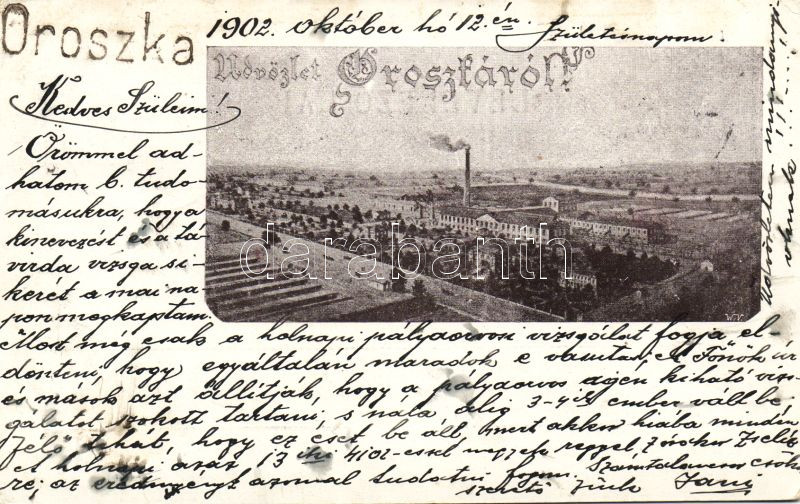 Oroszka
1902. október hó 12.én.
Születésnapom.
Üdvözlet Oroszkáról!
Kedves Szüleim!
Örömmel ad-
hatom b. tudo-
másukra, hogy a
kinevezést és a tá-
virda vizsga si-
kerét a mai na-
pon megkaptam.
Most még csak a holnapi pályaorvosi vizsgálat fogja el-
dönteni, hogy egyáltalán maradok e vasutas, A Török úr
és mások azt állítják, hogy a pályaorvos igen kiható vizs-
gálatot szokott tartani, s nála alig 3-4 ember vált be,
félő tehát, hogy ez eset be áll, mert akkor hiába minden
A holnapi azaz 13 iki reggel
re; az eredményt azonnal tudatni fogom. Számtalanszor csókol
szerető fiuk Jani
Üdvözletem mindany-
nyiuknak!!!
darabanth.com
W.V.